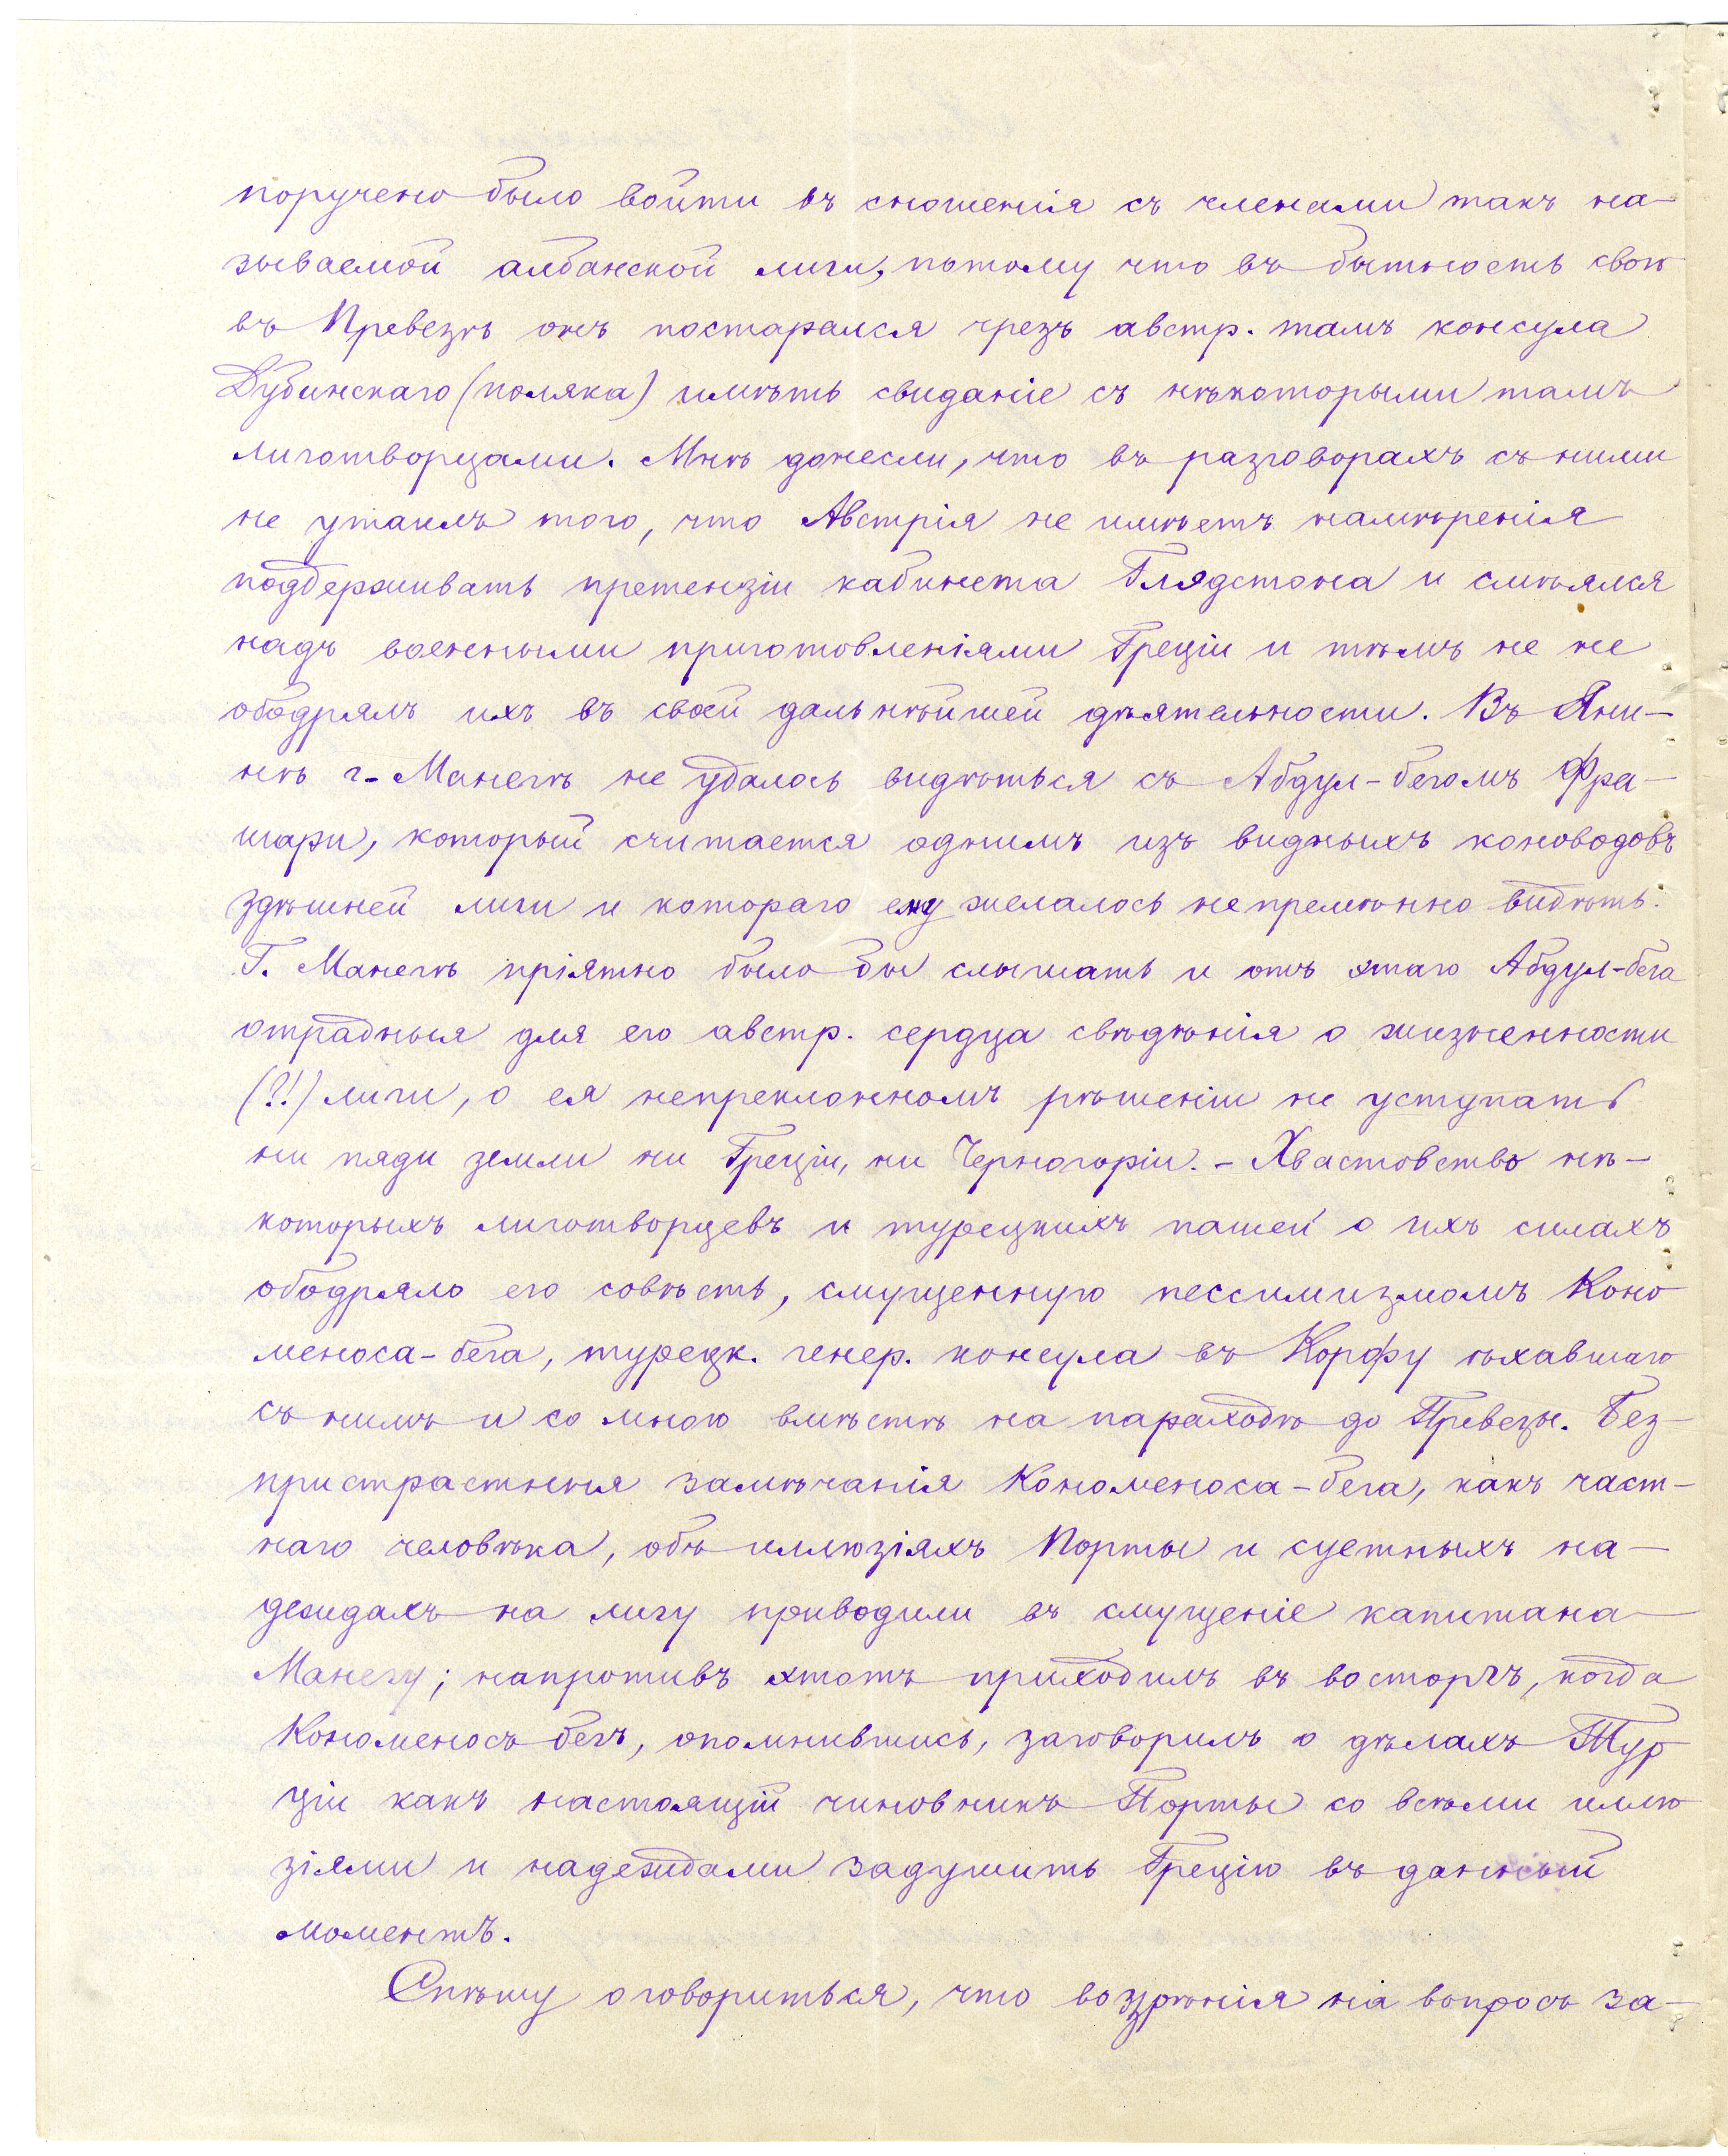 поручено было войти въ сношенія съ членами такъ на-
зываемой албанской лиги, потому что въ бытность свою
въ Превезѣ онъ постарался чрезъ австр. тамъ консула
Дубинскаго (поляка) имѣть свиданіе съ нѣкоторыми тамъ
лиготворцами. Мнѣ донесли, что въ разговорахъ съ ними
не утаилъ того, что Австрія не имѣетъ намѣренія
поддерживать претензіи кабинета Глядстона и смѣялся
надъ военными приготовленіями Греціи и тѣмъ не не
ободрялъ ихъ въ своей дальнѣйшей дѣятельности. Въ Яни-
нѣ г- Манегѣ не удалось видѣться съ Абдул-бегомъ Фра-
шари, который считается однимъ изъ видныхъ коноводовъ
здѣшней лиги и котораго ему желалось непремѣнно видѣть.
Г. Манегѣ пріятно было бы слышать и отъ этаго Абдул-бега
отрадныя для его австр. сердца свѣдѣнія о жизненности
(?!) лиги, о ея непреклонномъ рѣшеніи не уступать
ни пяди земли ни Греціи, ни Черногоріи. - Хвастовство нѣ-
которыхъ лиготворцевъ и турецкихъ пашей о ихъ силахъ
ободряло его совѣсть, смущенную пессимизмомъ Коно
меноса-бега, турецк. генер. консула въ Корфу ѣхавшаго
съ нимъ и со мною вмѣстѣ на параходѣ до Превезы. Без-
пристрастныя замѣчанія Кономеноса-бега, какъ част-
наго человѣка, объ иллюзіяхъ Порты и суетныхъ на-
деждахъ на лигу приводили въ смущеніе капитана
Манегу; напротивъ этотъ приходилъ въ восторгъ, когда
Кономеносъ бегъ, опомнившись, заговорилъ о дѣлахъ Тур
ціи какъ настоящій чиновникъ Порты со всѣми иллю
зіями и надеждами задушить Грецію въ данный
моментъ.
Спѣшу оговориться, что воззрѣнія на вопросъ за-